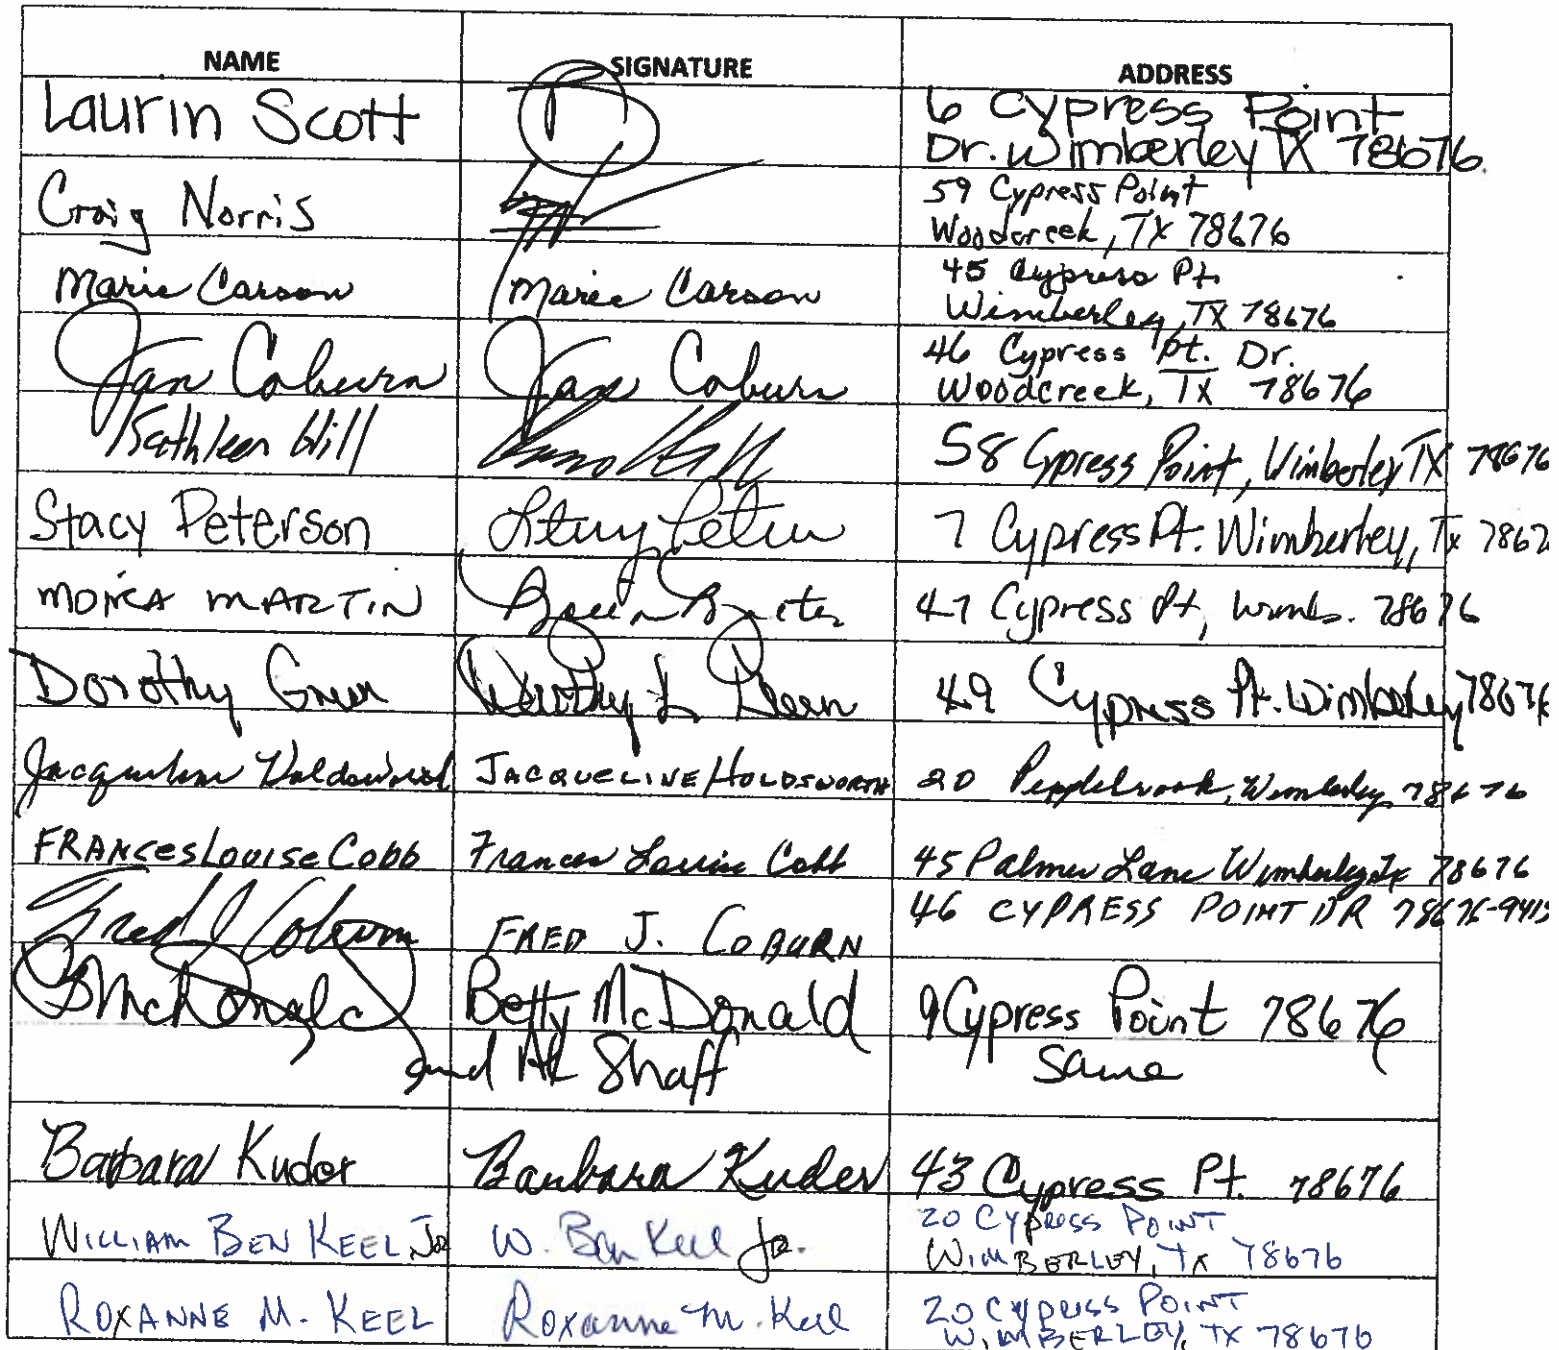 NAME SIGNATURE ADDRESS
Laurin Scott 6 Cypress Point
Dr. Wimberley TX 78676
Craig Norris 59 Cypress Point
Woodcreek, TX 78676
Marie Carson Marie Carson 45 Cypress Pt.
Wimberley, TX 78676
Jan Coburn Jan Coburn 46 Cypress Pt. Dr.
Woodcreek, TX 78676
Kathleen Hill 58 Cypress Point, Wimberley TX 78676
Stacy Peterson 7 Cypress Pt. Wimberley, Tx 7867
MONICA MARTIN 47 Cypress Pt, Wimb. 78676
Dorothy Green Dorothy L Green 49 Cypress Pt. Wimberley 78676
Jacqueline Holdsworth JACQUELINE HOLDSWORTH 20 Wimberley 78676
FRANCES LOUISE Cobb Frances Louise Cobb 45 Palmer Lane Wimberley Tx 78676
Fred J Coburn FRED J. COBURN 46 CYPRESS POINT DR 78676-9415
B McDonald Betty McDonald 9 Cypress Point 78676
and Al Shaff Same
Barbara Kuder Barbara Kuder 43 Cypress Pt. 78676
WILLIAM BEN KEEL JR W. Ben Keel Jr. 20 CYPRESS POINT
WIMBERLEY, TX 78676
ROXANNE M. KEEL Roxanne M. Keel 20 CYPRESS POINT
WIMBERLEY, TX 78676